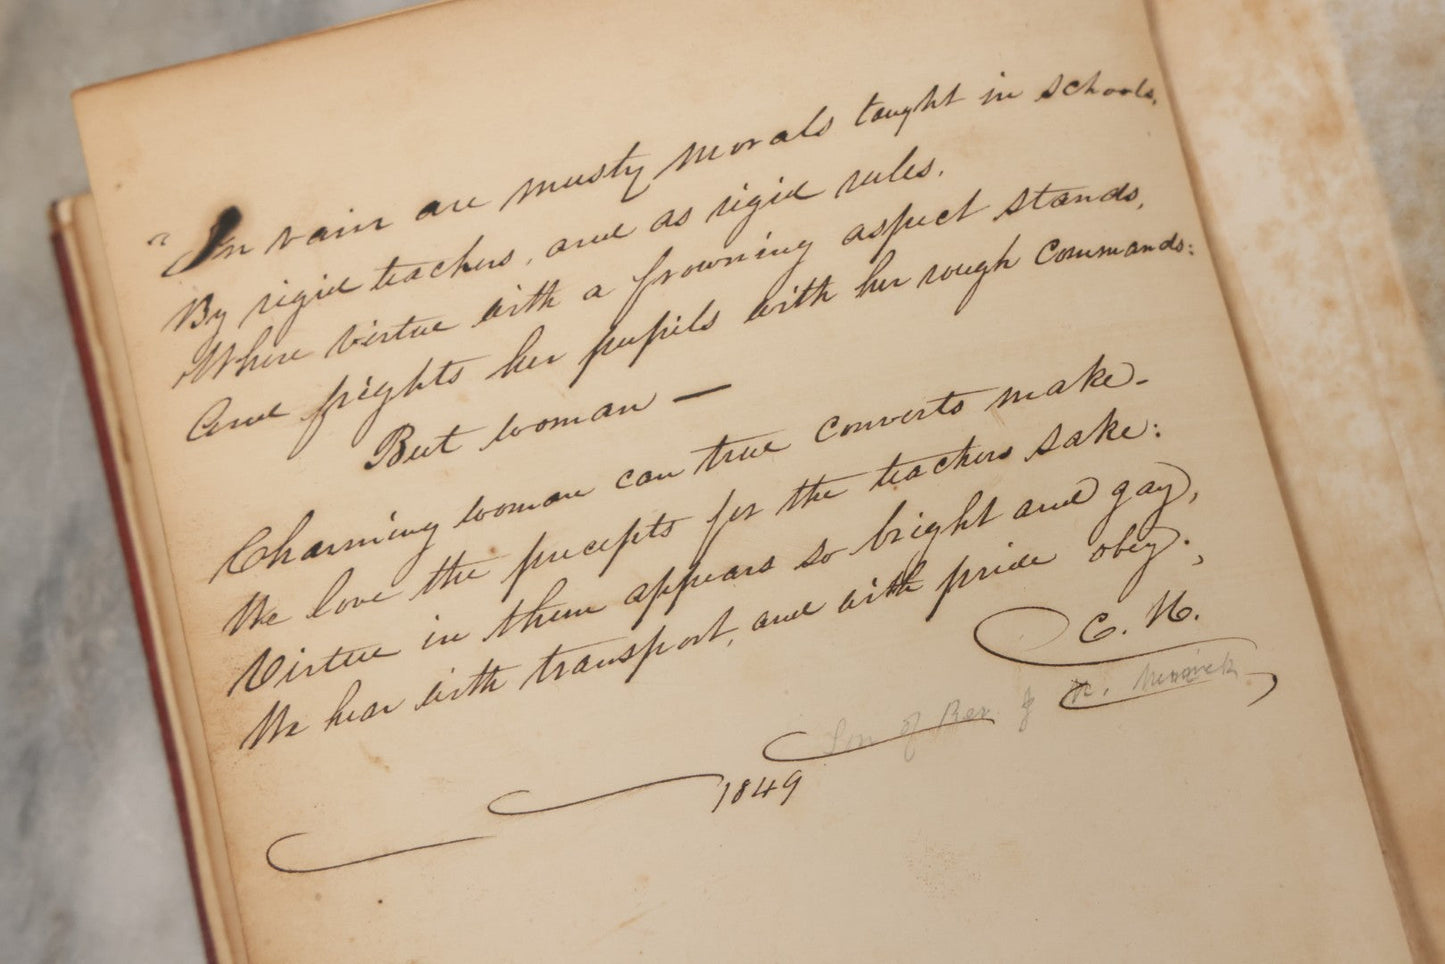 "In vain are musty morals taught in schools,
By rigid teachers, and as rigid rules,
Where virtue with a frowning aspect stands,
And frights her pupils with her rough commands:
But woman —
Charming woman can true converts make-
We love the precepts for the teachers sake:
Virtue in them appears so bright and gay,
We hear with transport, and with pride obey.,
C. N.
Son of Rev. J
1849